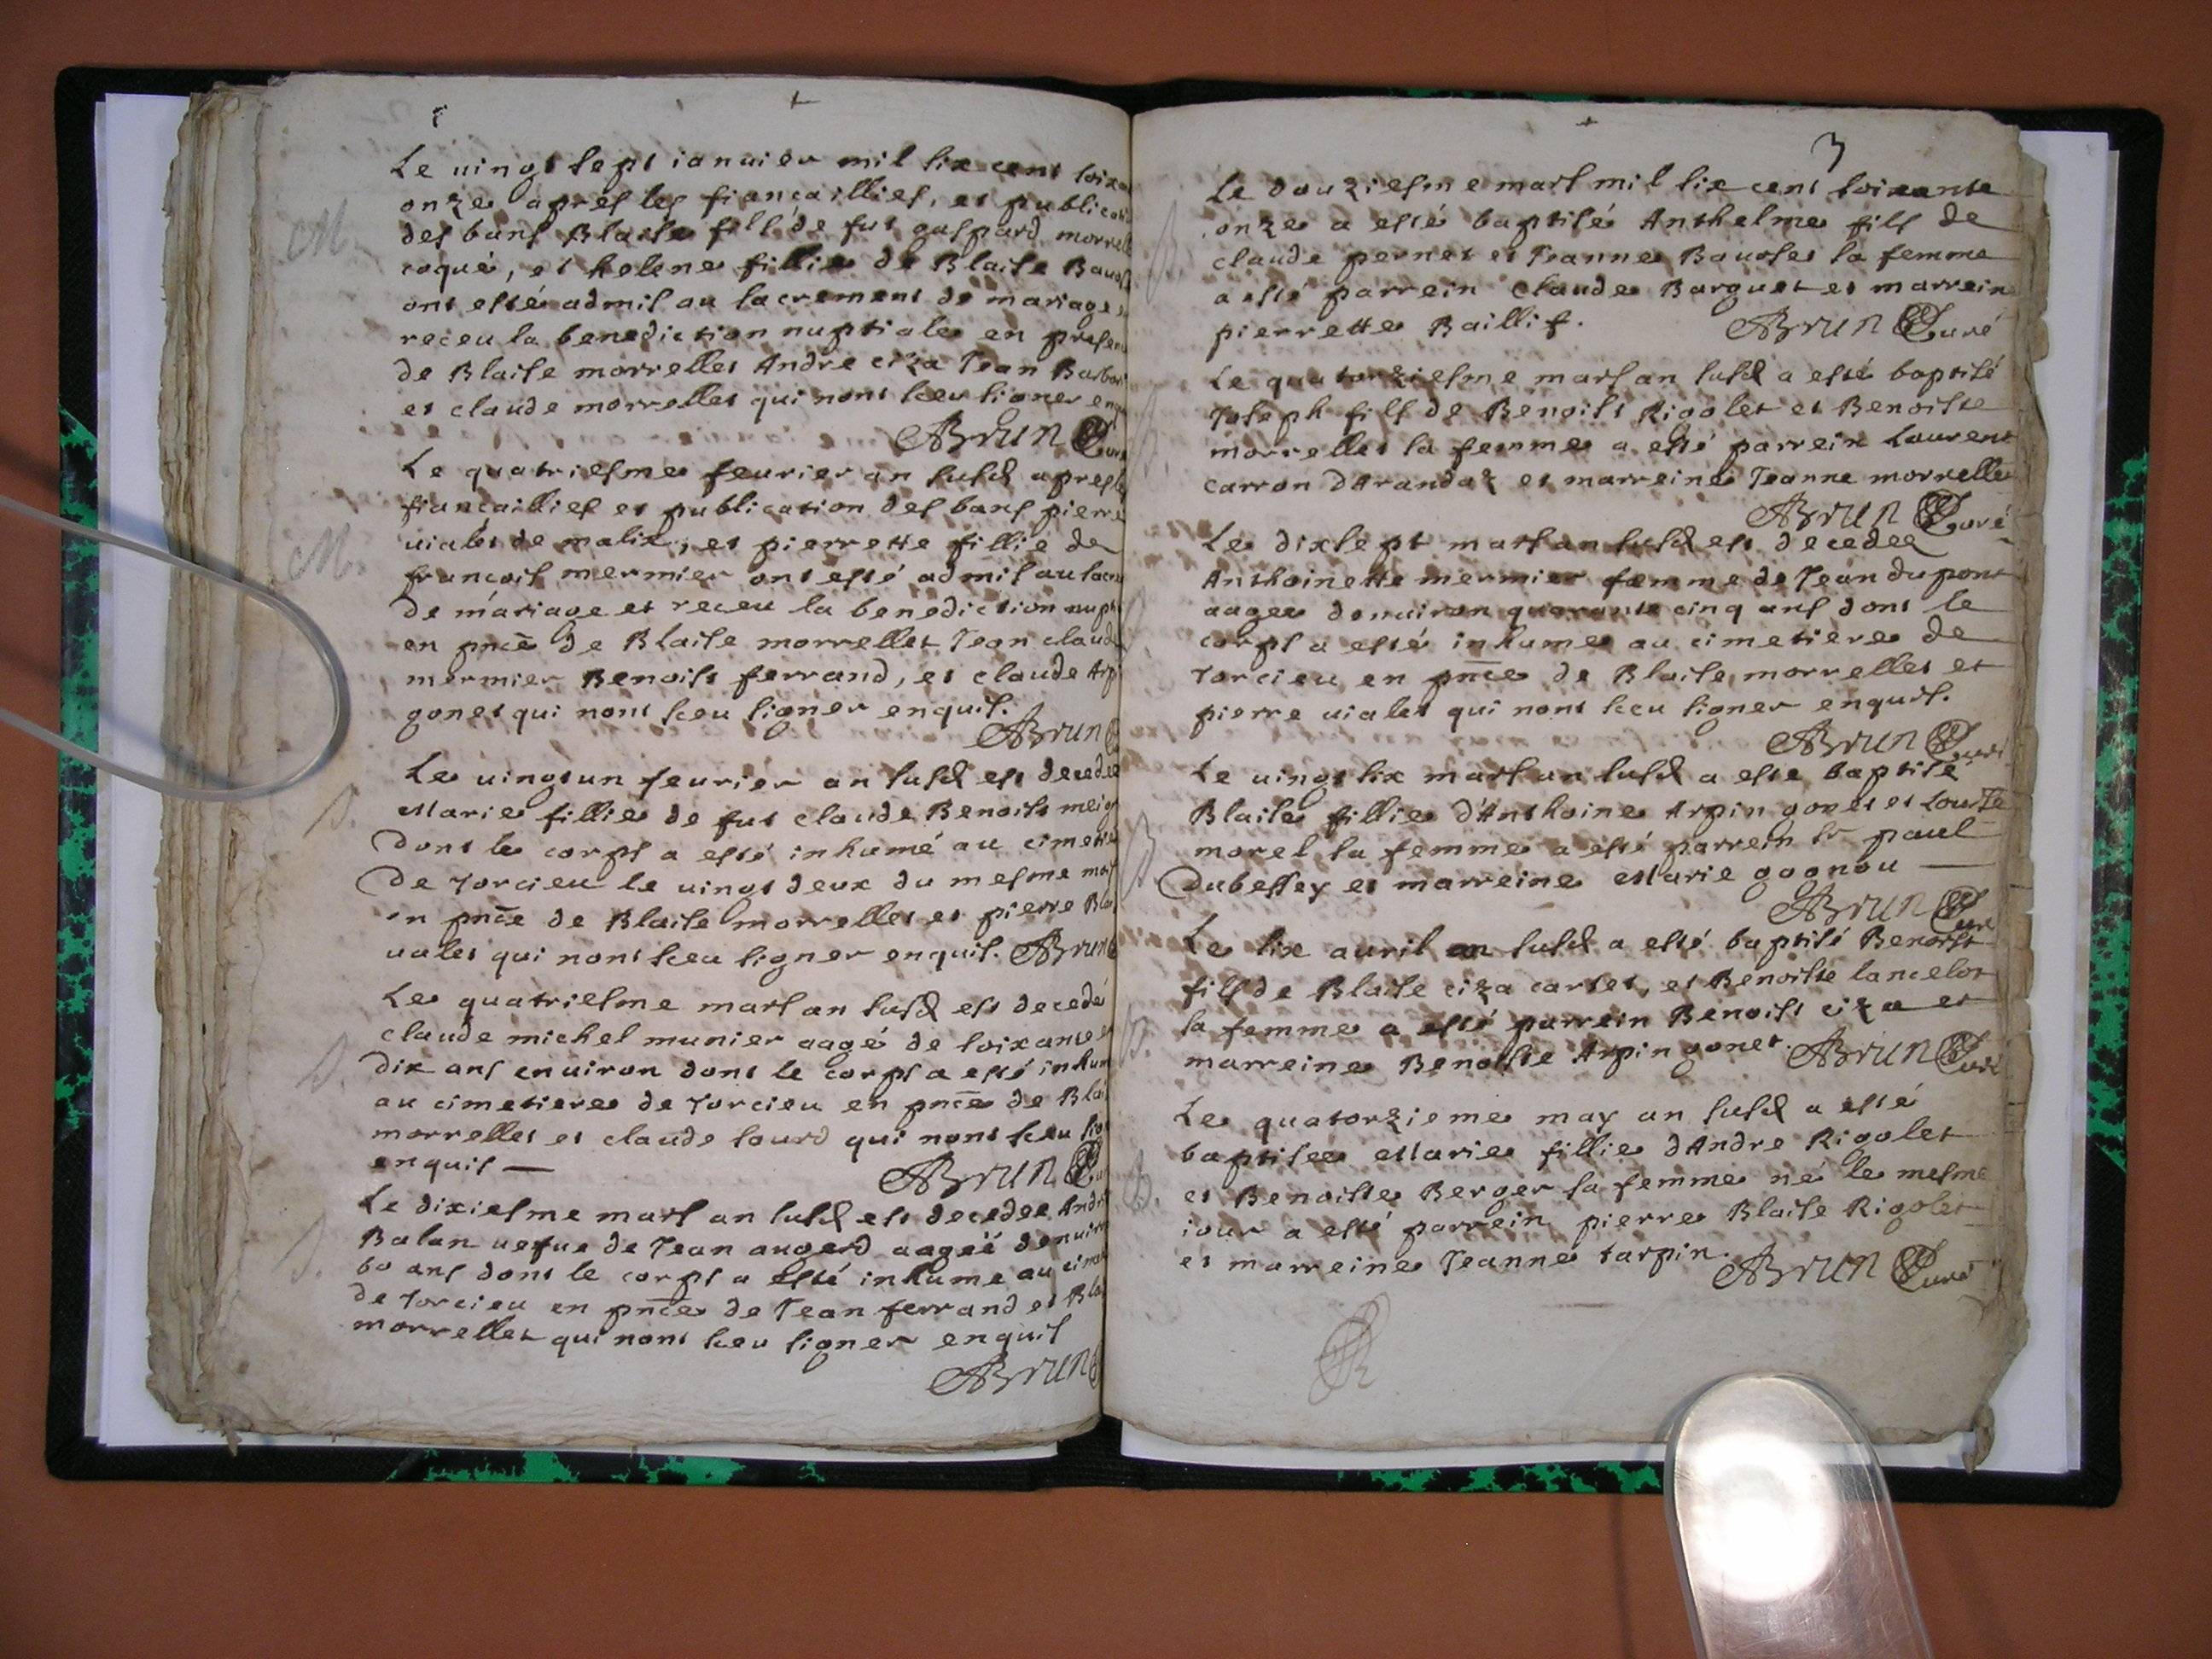 Le vingt sept ianvier mil six cens
onze apres les fiançaillies, et
des bans Blaise fils de fut gaspard
coque, et helene fillie de Blaise
M.
ont esté admis au sacrement de mariage
receu la benediction nuptiale en
de Blaise morrellet Andre ciza Jean
et claude morrellet qui nont sceu signer
ABrun
Le quatriesme feurier an susd apres
fiançaillies et publication des bans pierre
uialet de malix, et pierrette fillie de
M.
francois mermier ont esté admis au
de mariage et receu la benediction
en pnce de Blaise morrellet Jean claude
mermier Benoist ferrand, et claude
gonet qui nont sceu signer enquis.
ABrun
Le uingt un feurier an susd est decedee
S.
Marie fillie de fut claude Benoist
Dont le corps a esté inhumé au
De Torcieu le uingt deux du mesme
en pnce de Blaise morrellet et pierre
ualet qui nont sceu signer enquis. ABrun
Le quatriesme mars an susd est decedé
claude michel munier aagé de soixante
S.
dix ans enuiron dont le corps a esté
au cimetiere de Torcieu en pnce de
morrellet et claude sourd qui nont sceu
enquis —
ABrun
Le dixiesme mars an susd est decedee
Balan uefue de Jean augerd aageé
S.
60 ans dont le corps a esté inhume au
de Torcieu en pnce de Jean ferrand et
morrellet qui nont sceu signer enquis
ABrun
3
Le douziesme mars mil six cens soixante
onze a esté baptisé Anthelme fils de
claude pernet et Jeanne Bauoset sa femme
a esté parrein Claude Barguet et marreine
pierrette Baillif. ABrun Curé
Le quatorziesme mars an susd a esté baptisé
Joseph fils de Benoist Rigolet et Benoiste
morrellet sa femme a esté parrein Laurent
carron dArandaz et marreine Jeanne morrellet
ABrun Curé
Le dixsept mars an susd est decedee
Anthoinette mermier femme de Jean du pont
aagee denuiron quarante cinq ans dont le
corps a esté inhume au cimetiere de
Torcieu en pnce de Blaise morrellet et
pierre uialet qui nont sceu signer enquis.
ABrun Curé
Le uingt six mars an susd a este baptisé
Blaise fillie d'Anthoine Arpin gonet et Louise
B
morel sa femme a esté parrein sr paul
Dubessey et marreine Marie gognou —
ABrun Curé
Le six auril an susd a esté baptisé Benoist
fils de Blaise ciza carlet, et Benoiste lancelot
B.
sa femme a esté parrein Benoist ciza et
marreine Benoiste Arpin gonet. ABrun Curé
Le quatorzieme may an susd a esté
baptisee Marie fillie dAndre Rigolet
B.
et Benoiste Berger sa femme né le mesme
iour a esté parrein pierre Blaise Rigolet
et marreine Jeanne tarpin. ABrun Curé